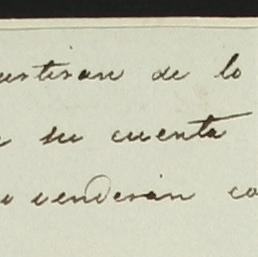 urtiran de lo
su cuenta
venderán co